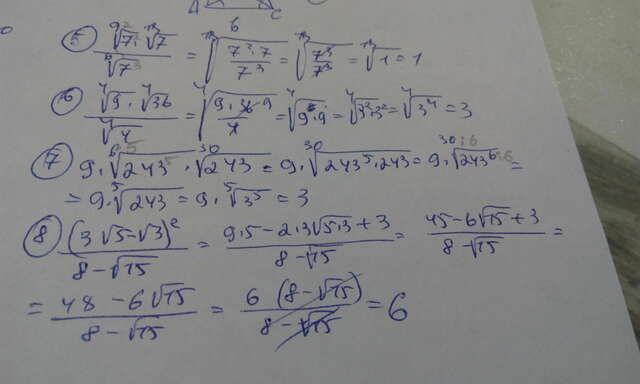 A C
6
5 \frac{\sqrt[9]{7^2} \cdot \sqrt[18]{7}}{\sqrt[6]{7^3}} = \sqrt[18]{\frac{7^2 \cdot 7}{7^3}} = \sqrt[18]{\frac{7^3}{7^3}} = \sqrt[18]{1} = 1
6 \frac{\sqrt[4]{9} \cdot \sqrt[4]{36}}{\sqrt[4]{4}} = \sqrt[4]{\frac{9 \cdot 36 \cdot 9}{4}} = \sqrt[4]{9 \cdot 9} = \sqrt[4]{3^2 \cdot 3^2} = \sqrt[4]{3^4} = 3
7 9 \cdot \sqrt[6]{243} \cdot \sqrt[30]{243} = 9 \cdot \sqrt[30]{243^5 \cdot 243} = 9 \cdot \sqrt[30:6]{243^{6:6}} =
= 9 \cdot \sqrt[5]{243} = 9 \cdot \sqrt[5]{3^5} = 3
8 \frac{(3\sqrt{5} - \sqrt{3})^2}{8 - \sqrt{15}} = \frac{9 \cdot 5 - 2 \cdot 3\sqrt{5 \cdot 3} + 3}{8 - \sqrt{15}} = \frac{45 - 6\sqrt{15} + 3}{8 - \sqrt{15}} =
= \frac{48 - 6\sqrt{15}}{8 - \sqrt{15}} = \frac{6(8 - \sqrt{15})}{8 - \sqrt{15}} = 6